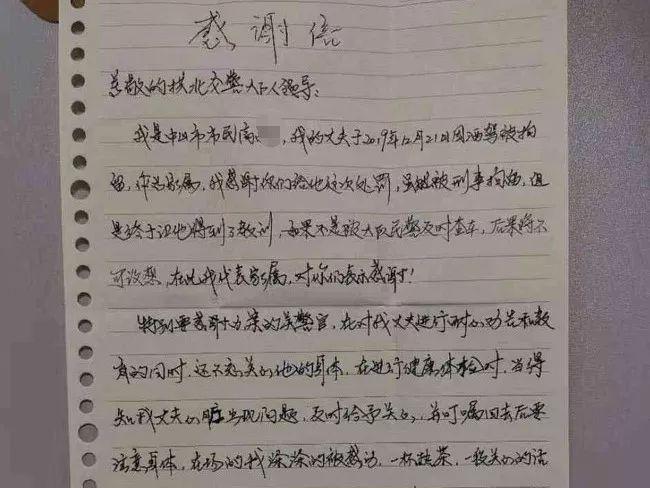 感谢信
尊敬的拱北交警大队领导:
我是中山市市民高,我的丈夫于2019年12月21日因酒驾被拘
留,作为家属,我感谢你们给他这次处罚,虽然被刑事拘留,但
是终于让他得到了教训,如果不是贵大队民警及时查车,后果将不
可设想,在此我代表家属,对你们表示感谢!
特别要感谢办案的关警官,在对我丈夫进行耐心劝告和教
育的同时,还不忘关心他的身体,在进行健康体检时,当得
知我丈夫心脏出现问题,及时给予关心,并叮嘱回去后要
注意身体,在场的我深深的被感动,一杯热茶,一段关心的话